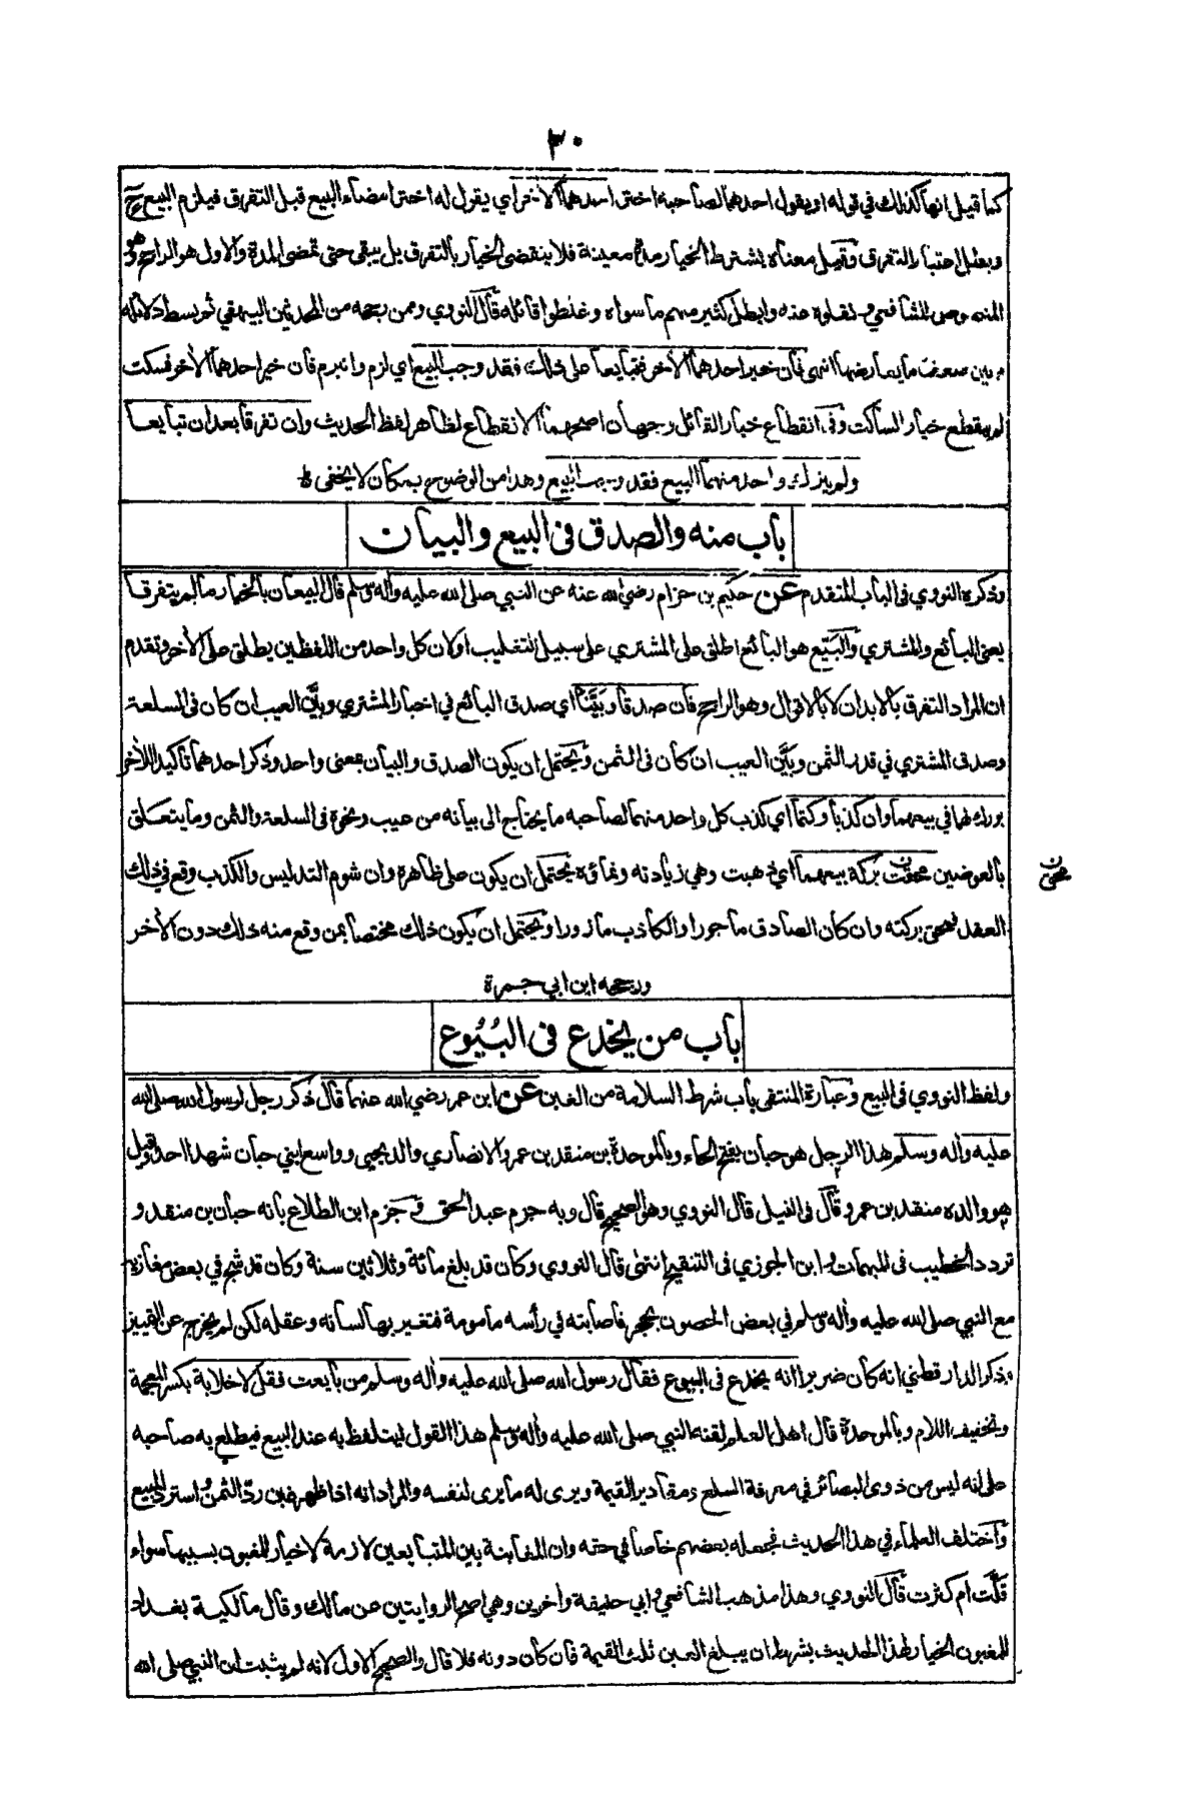 ٣٠
كما قيل انها كذلك في قوله او يقول احدهما لصاحبه اختر احدهما الآخر اي يقول له اختر امضاء البيع قبل التفرق فيلزم البيع ح
وبطل اعتبار التفرق وقيل معناه يشترط الخيار مدة معينة فلا ينقضى الخيار بالتفرق بل يبقى حتى تمضى المدة والاول هو الراجح وهو
المنصوص للشافعي ونقلوه عنه وابطل كثير منهم ما سواه وغلطوا قائله قال النووي وممن رجحه من المحدثين البيهقي ثم بسط دلائله
وبين ضعف ما يعارضها انتهى فان خير احدهما الأخر فتبايعا على ذلك فقد وجب البيع اي لزم وانبرم فان خير احدهما الأخر فسكت
لم ينقطع خيار الساكت وفى انقطاع خيار القائل وجهان اصحهما الانقطاع لظاهر لفظ الحديث وان تفرقا بعد ان تبايعا
ولم يترك واحد منهما البيع فقد وجب البيع وهذا من الوضوح بمكان لا يخفى ط
باب منه والصدق فى البيع والبيان
وذكره النووي فى الباب المتقدم عن حكيم بن حزام رضي الله عنه عن النبي صلى الله عليه وأله وسلم قال البيعان بالخيار ما لم يتفرقا
يعنى البائع والمشتري والبَيّع هو البائع اطلق على المشتري على سبيل التغليب او لان كل واحد من اللفظين يطلق على الأخر وتقدم
ان المراد التفرق بالابدان لا بالاقوال وهو الراجح فان صدقا وبَيَّنا اي صدق البائع في اخبار المشتري وبيَّن العيب ان كان فى السلعة
وصدق المشتري في قدر الثمن وبيَّن العيب ان كان فى الثمن ويحتمل ان يكون الصدق والبيان بمعنى واحد وذكر احدهما تأكيد اللأخر
بورك لهما في بيعهما وان كذبا وكتما اي كذب كل واحد منهما لصاحبه ما يحتاج الى بيانه من عيب ونحوه فى السلعة والثمن وما يتعلق
بالعوضين محقت بركة بيعهما اي ذهبت وهي زيادته ونماؤه يحتمل ان يكون على ظاهره وان شوم التدليس والكذب وقع في ذلك
العقد فمحق بركته وان كان الصادق ماجورا والكاذب مازورا ويحتمل ان يكون ذلك مختصا بمن وقع منه ذلك دون الأخر
ورجحه ابن ابي جمرة
باب من يخدع فى البُيُوع
ولفظ النووي فى البيع وعبارة المنتقى باب شرط السلامة من الغبن عن ابن عمر رضي الله عنهما قال ذكر رجل لرسول الله صلى الله
عليه وأله وسلم هذا الرجل هو حبان بفتح الحاء وبالموحدة بن منقذ بن عمرو الانصاري والد يحيى وواسع ابني حبان شهد احدا وقيل
هو والده منقذ بن عمرو قال فى النيل قال النووي وهو الصحيح قال وبه جزم عبد الحق وجزم ابن الطلاع بانه حبان بن منقذ و
تردد الخطيب فى المبهمات وابن الجوزي فى التنقيح انتهى قال النووي وكان قد بلغ مائة وثلاثين سنة وكان قد شج في بعض مغازيه
مع النبي صلى الله عليه وأله وسلم في بعض الحصون بحجر فاصابته في رأسه مامومة فتغير بها لسانه وعقله لكن لم يخرج عن التمييز
وذكر الدار قطني انه كان ضريرا انه يخدع فى البيوع فقال رسول الله صلى الله عليه وأله وسلم من بايعت فقل لاخلابة بكسر المعجمة
وتخفيف اللام وبالموحدة قال اهل العلم لقنه النبي صلى الله عليه وأله وسلم هذا القول ليتلفظ به عند البيع فيطلع به صاحبه
على انه ليس من ذوى البصائر في معرفة السلع ومقادير القيمة ويرى له ما يرى لنفسه والمراد انه اذا ظهر غبن ردّ الثمن واسترد المبيع
واختلف العلماء في هذا الحديث فجعله بعضهم خاصا في حقه وان المغابنة بين المتبايعين لازمة لاخيار للمغبون بسببها سواء
قلّت ام كثرت قال النووي وهذا مذهب الشافعي وابي حنيفة وأخرين وهي اصح الروايتين عن مالك وقال مالكية بغداد
للمغبون الخيار لهذا الحديث بشرط ان يبلغ الغبن ثلث القيمة فان كان دونه فلا قال والصحيح الاول لانه لم يثبت ان النبي صلى الله